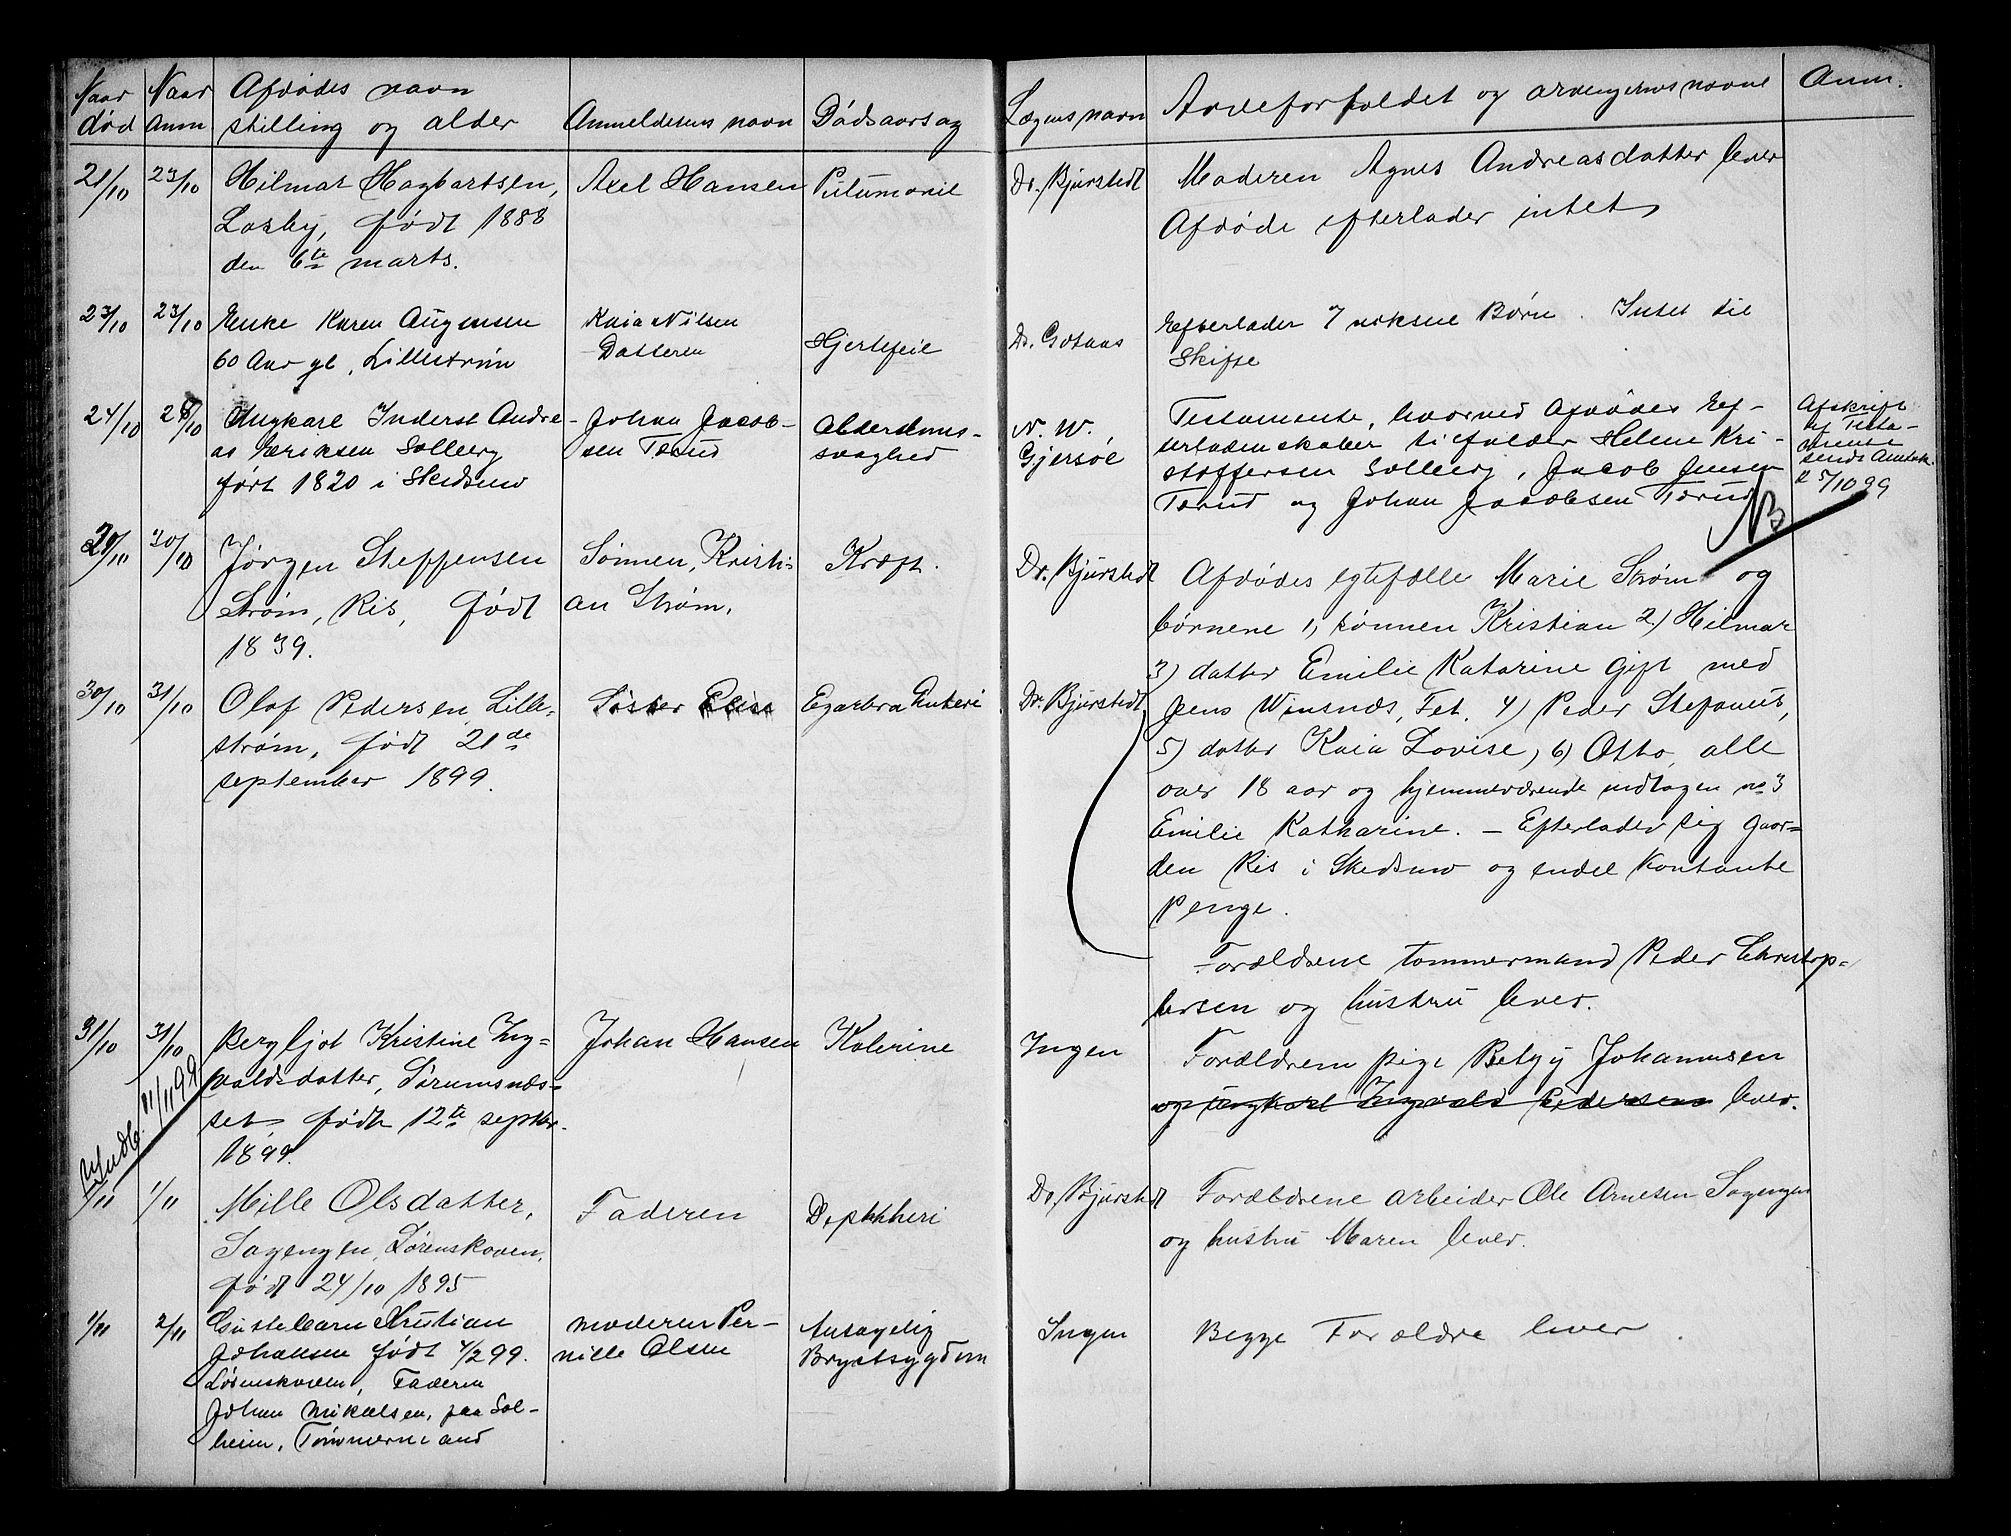 Naar død
Naar anm
Afdødes navn
stilling og alder
Anmelderens navn
Dødsaarsag
Lægens navn
Arveforholdet og arvingernes navne
Anm.
21/10
23/10
Hilmar Hagbartsen,
Losby, født 1888
den 6te marts.
Axel Hansen
Dr. Bjurstedt
Moderen Agnes Andreasdatter lever
Afdøde efterlader intet
23/10
23/10
Enke Karen Augensen
60 Aar gl, Lillestrøm
Kaia Nilsen
Datteren
Hjertefeil
Dr. Gotaas
Efterlader 7 voksne Børn. Intet til
Skifte
24/10
28/10
Ungkarl Inderst Andre-
as Eeriksen Solberg
født 1820 i Skedsmo
Johan Jacob-
sen Tærud
Alderdoms-
svaghed
N. W.
Gjersøe
Testamente, hvorved Afdødes Ef-
terladenskaber tilfalder Helene Kri-
stoffersen Solberg, Jacob Jensen
Tærud og Johan Jacobsen Tærud
NB
Afskrift
af Testa-
mente
sendt Amtsk.
5/10 99
29/10
30/10
Jørgen Steffensen
Strøm, Ris, født
1839.
Sønnen, Kristi-
an Strøm.
Kræft.
Dr. Bjurstedt
Afdødes egtefælle Marie Strøm og
børnene 1, sønnen Kristian 2) Hilmar
3) datter Emilie Katarine gift med
Jens Winsnæs, Fet. 4) Peder Stefanus,
5) datter Kaia Lovise, 6) Otto, alle
over 18 aar og hjemmeværende undtagen no 3
Emilie Katharine. – Efterlader sig gaar-
den Ris i Skedsmo og endel kontante
Penge.
30/10
31/10
Olaf Pedersen, Lille-
strøm, født 21de
september 1899.
Søster Elise
Dr. Bjurstedt
Forældrene tømmermand Peder Christop-
hersen og hustru lever.
31/10
31/10
Bergljot Kristine Ing-
valdsdatter, Sørumsnæs-
set, født 12te septbr.
1899.
Johan Hansen
Kolerine
Ingen
Forældrem pige Betzy Johannesen
og ungkarl Ingvald Pedersen lever.
Indb. 11/11 99
1/11
1/11
Mille Olsdatter,
Sagengen, Lørenskoven,
født 24/10 1895
Faderen
Depththeri
Dr. Bjurstedt
Forældrene arbeider Ole Arnesen Sagengen
og hustru Maren lever.
1/11
2/11
Gustebarn Kristian
Johansen født 4/2 99.
Lørenskoven, Faderen
Johan Mikalsen, paa Sol-
heim, Tømmermand
moderen Per-
nille Olsen
Antagelig
Brystsygdom
Ingen
Begge Forældre lever.